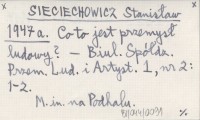 SIECIECHOWICZ Stanisław
1947a. Co to jest przemysł
ludowy? — Biul. Spółdz.
Przem. Lud. i Artyst. 1, nr 2:
1-2.
M. in. na Podhalu.